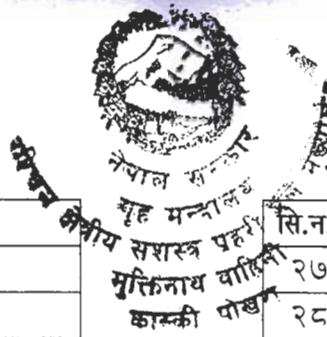 नेपाल सरकार
गृह मन्त्रालय
क्षेत्रीय सशस्त्र प्रहरी
मुक्तिनाथ वाहिनी
कास्की पोखरा
सि.न
२७
२८